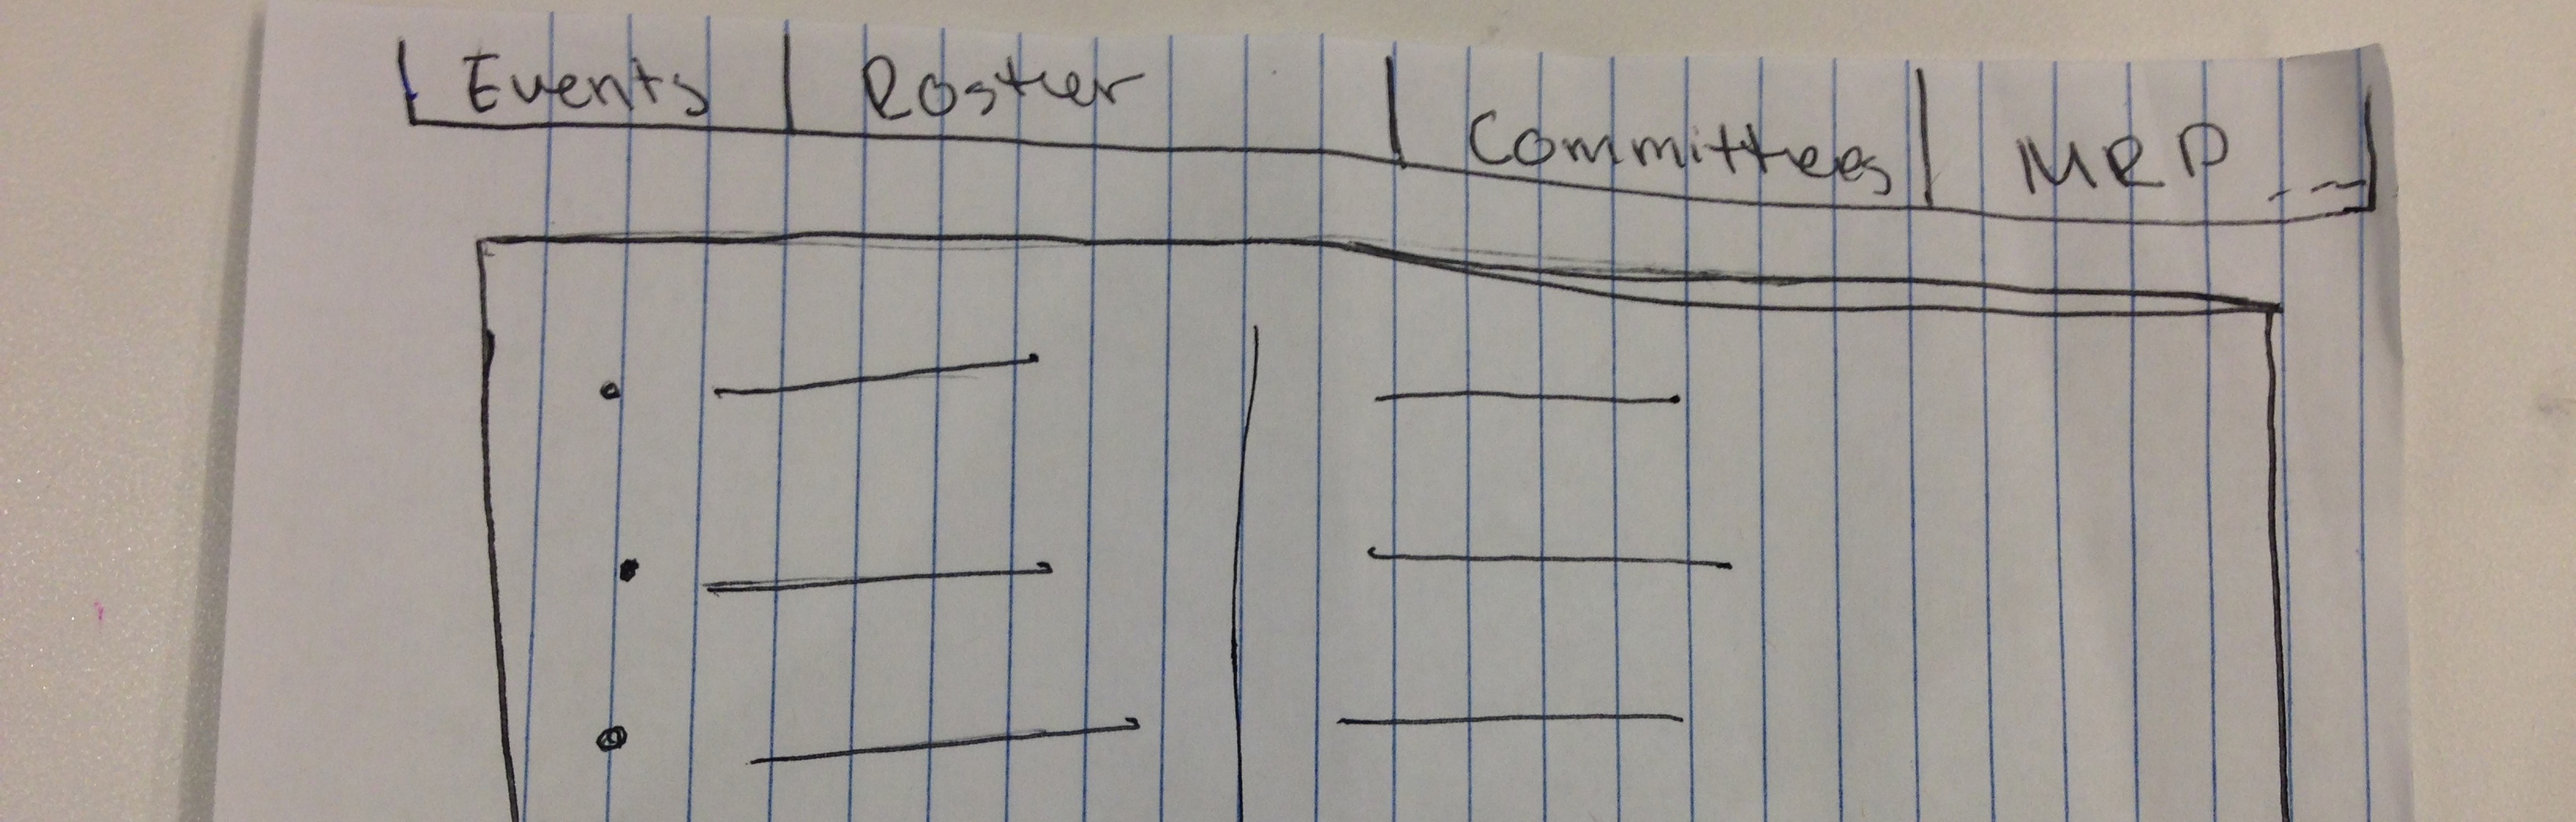 Events Roster Committees MRP